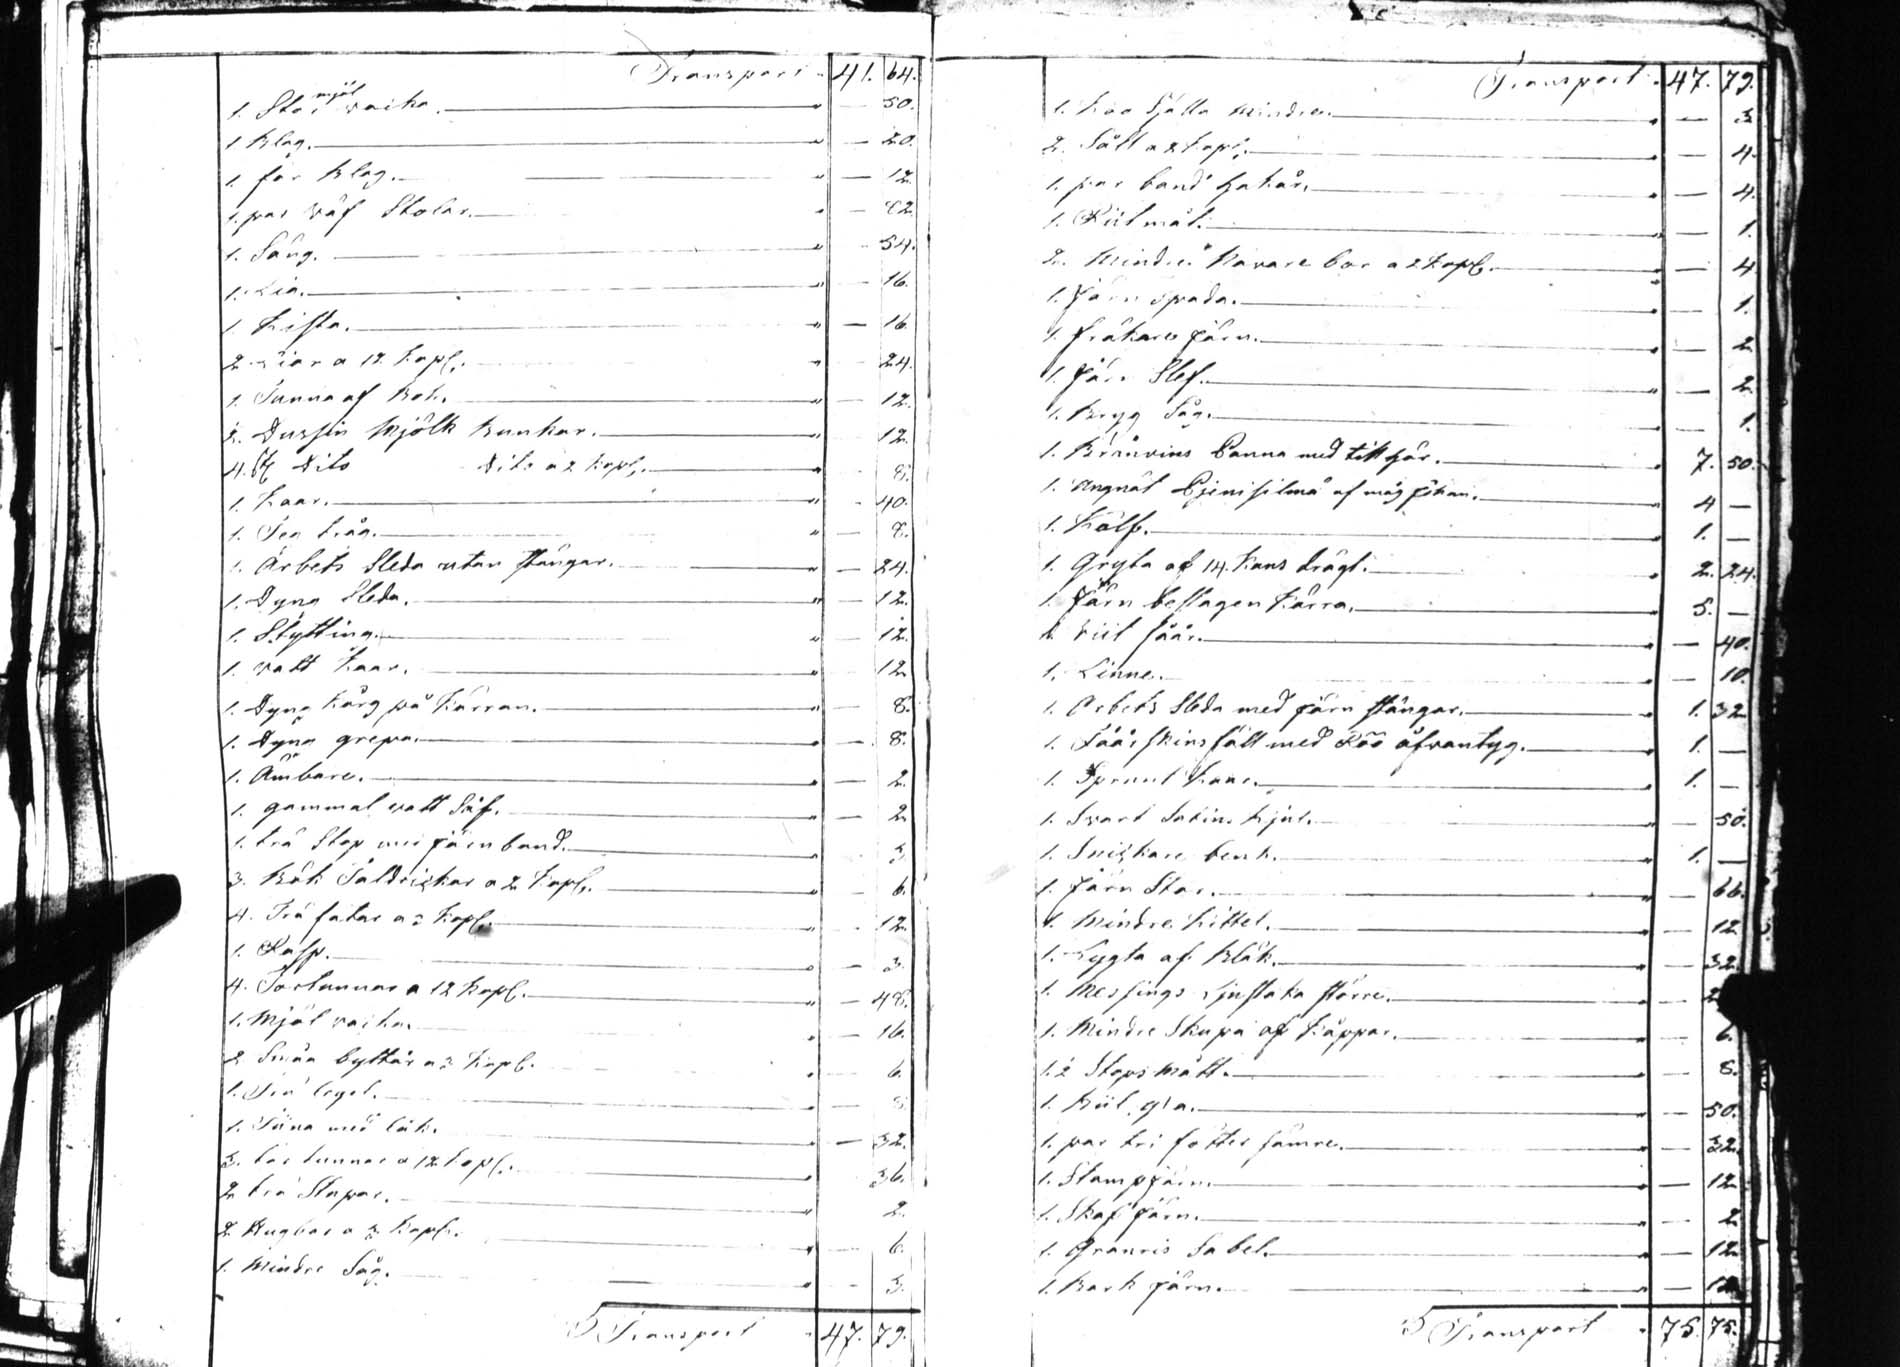 Transport 41. 64.
1. Stor mjöl vacka. — 50.
1 Klag. — 20.
1. för Klag. — 12.
1. par väf Stolar. — 82.
1. Säng. — 54.
1. Lia. — 16.
1. Kista. — 16.
2 Liar a 12. kopk. — 24.
1. Tunna af — 12.
2. Dussin Mjölk Bunkar. — 12.
4. st Dito Dito a 2 kopk. — 8.
1. Kaar. — 40.
1. Deg tråg. — 8.
1. Arbets Släda utan stångar. — 24.
1. Dyng Släda. — 12.
1. Stytting. — 12.
1. vatt Kaar. — 12
1. Dyng Kårg på Kärran. — 8.
1. Dyng grepa. — 8.
1. Ämbare. — 2.
1. gammal vatt Så. — 2
1. trä Stop med järn band. — 3.
3. Täldrickar a 2 kopk. — 6.
4. Trä fatar a 3 kopk. — 12.
1. Rasp. — 3.
4. Tortunnor a 12 kopk. — 48.
1. Mjöl vacka. — 16.
2 Små byttår a 3 kopk. — 6.
1. Trä legel. — 8.
1. Tina med låk. — 32.
3. tor tunnor a 12 kopk. — 36.
2 trä Stopar. — 2.
2 a 3 kopk. — 6.
1. Mindre Såg. — 3.
Transport 47. 79.
Transport 47. 79.
1. Koo Själla Mindre. — 3
2. Såll a 2 kopk. — 4.
1. par band hakår. — 4.
1. Ritmåt. — 1.
2. Mindre Navare bor a 2 kopk. — 4
1. Järn spada. — 1.
1. järn. — 2
1. Järn Slef. — 2.
1. Brygg Såg. — 1.
1. Bränvins Panna med tillhör. — 7. 50.
1. Angnät af mig sjelf. 4 —
1. Kalf. — 1. —
1. Gryta af 14. Kans drägt. — 2. 24.
1. Järn beslagen Kärra. — 5. —
1. Vit fåår. — 40.
1. Linne. — 10.
1. Arbets Släda med järn stångar. — 1. 32
1. Fåårskins fäll med Röö åfvantyg. — 1. —
1. Sprunt Kaar. — 1. —
1. Svart Satins Kjol. — 50.
1. Snickare benk. — 1. —
1. Järn Stor. — 66.
1. Mindre Kittel. — 12
1. Lygta af Bläk. — 32.
1. Messings Ljustaka större. — 2
1. Mindre Skupa af Kåppar. — 6.
1. ½ Stops Mått. — 8.
1. — 50.
1. par tri fötter sämre. — 32.
1. Stampjärn. — 12
1. Skaf järn. — 2
1. Granris Sabel. — 12
1. Bark järn. — 12
Transport 75. 75.